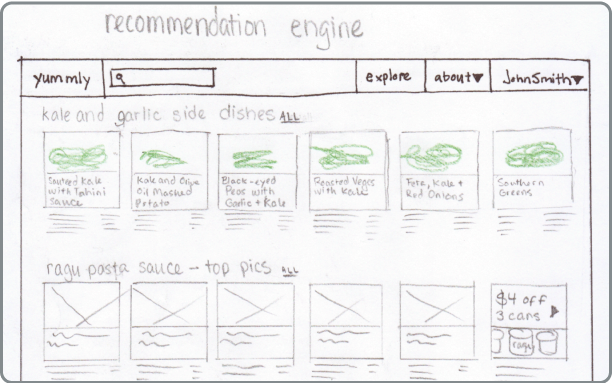 recommendation engine
yummly
explore
about
JohnSmith
kale and garlic side dishes ALL
Sauteed Kale
with Tahini
Sauce
Kale and Olive
Oil Mashed
Potato
Black-eyed
Peas with
Garlic + Kale
Roasted Veges
with Kale
Feta, Kale +
Red Onions
Southern
Greens
ragu pasta sauce - top pics ALL
$4 off
3 cans
ragu